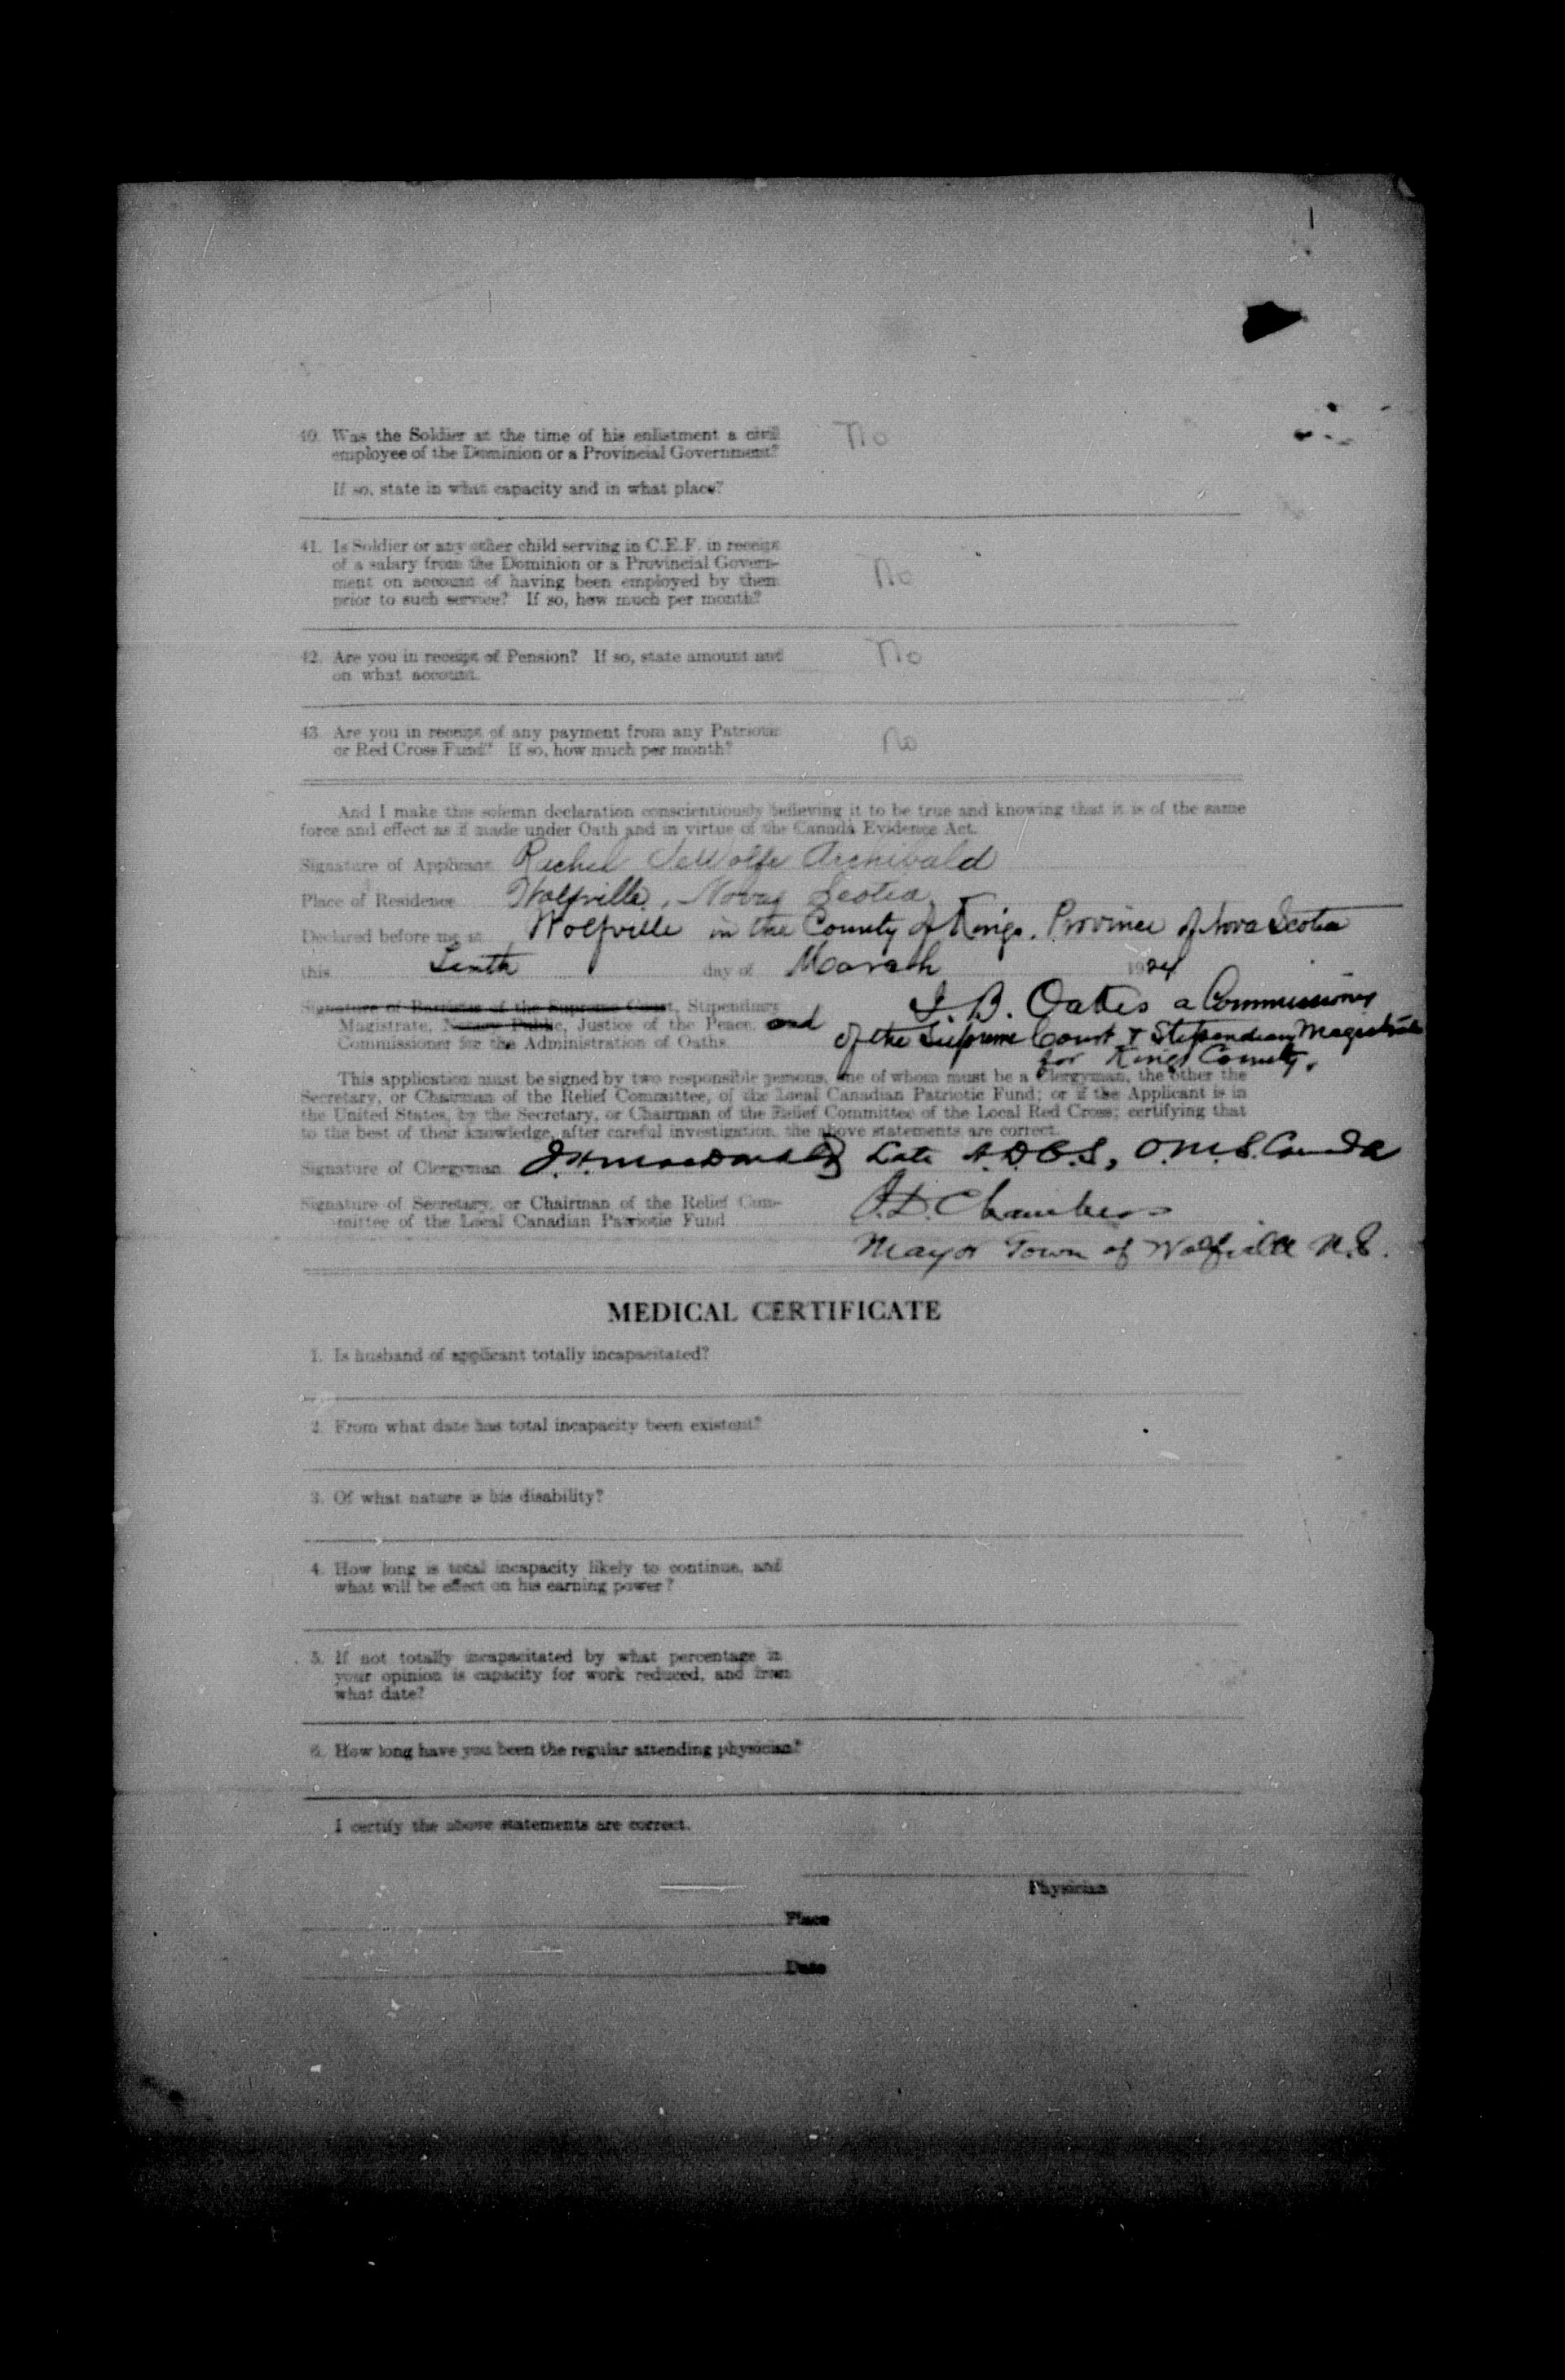 40. Was the Soldier at the time of his enlistment a civil No
employee of the Dominion or a Provincial Government?
If so, state in what capacity and in what place?
41. Is Soldier or any other child serving in C.E.F. in receipt
of a salary from the Dominion or a Provincial Govern-
ment on account of having been employed by them No
prior to such service? If so, how much per month?
42. Are you in receipt of Pension? If so, state amount and No
on what account.
43. Are you in receipt of any payment from any Patriotic
or Red Cross Fund? If so, how much per month? No
And I make this solemn declaration conscientiously believing it to be true and knowing that it is of the same
force and effect as if made under Oath and in virtue of the Canada Evidence Act.
Signature of Applicant DeWolfe Archibald
Place of Residence Wolfville, Nova Scotia
Declared before me at Wolfville in the County of Kings, Province of Nova Scotia
this Tenth day of March 1924
Signature of Barrister of the Supreme Court, Stipendiary
Magistrate, Notary Public, Justice of the Peace, and
Commissioner for the Administration of Oaths
Oakes a Commissioner
of the Supreme Court & Stipendiary Magistrate
for Kings County.
This application must be signed by two responsible persons, one of whom must be a Clergyman, the other the
Secretary, or Chairman of the Relief Committee, of the Local Canadian Patriotic Fund; or if the Applicant is in
the United States, by the Secretary, or Chairman of the Relief Committee of the Local Red Cross; certifying that
to the best of their knowledge, after careful investigation, the above statements are correct.
Signature of Clergyman J.H. MacDonald Late A.D.C.S., O.M.S. Canada
Signature of Secretary, or Chairman of the Relief Com-
mittee of the Local Canadian Patriotic Fund Chambers
Mayor Town of Wolfville N.S.
MEDICAL CERTIFICATE
1. Is husband of applicant totally incapacitated?
2. From what date has total incapacity been existent?
3. Of what nature is his disability?
4. How long is total incapacity likely to continue, and
what will be effect on his earning power?
5. If not totally incapacitated by what percentage in
your opinion is capacity for work reduced, and from
what date?
6. How long have you been the regular attending physician?
I certify the above statements are correct.
Physician
Place
Date